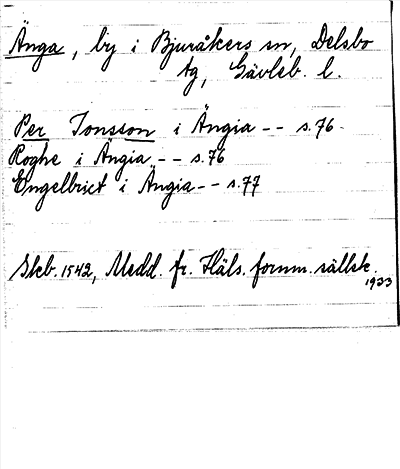 Änga, by i Bjuråkers sn, Delsbo
tg, Gävleb. l.
Per Jonsson i Ängia -- s.76.
Roghe i Ängia -- s.76
Engelbrict i Ängia -- s.77
Skb. 1542, Medd. fr. Häls. fornm. sällsk.
1933